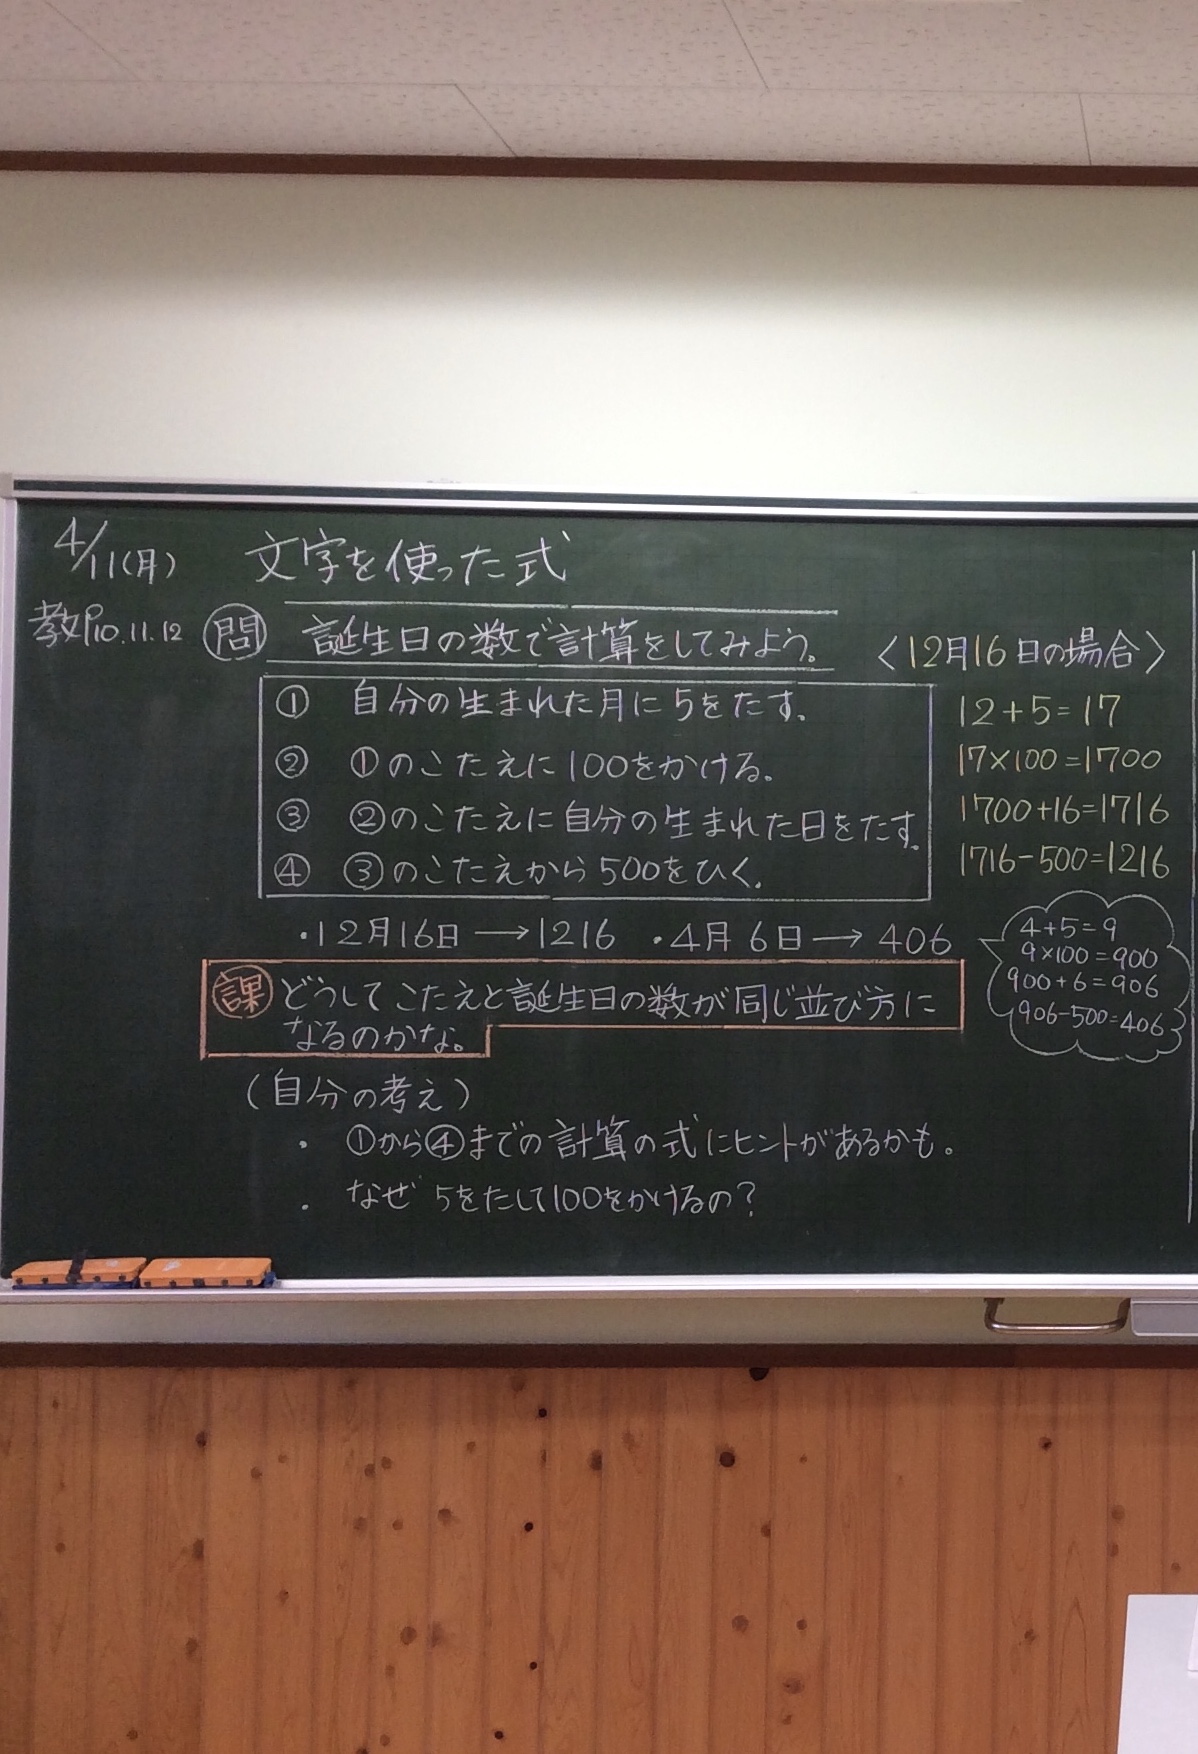 4/11(月) 文字を使った式
教P10.11.12 問 誕生日の数で計算をしてみよう。
① 自分の生まれた月に5をたす。
② ①のこたえに100をかける。
③ ②のこたえに自分の生まれた日をたす。
④ ③のこたえから500をひく。
・12月16日→1216 ・4月6日→406
〈12月16日の場合〉
12+5=17
17×100=1700
1700+16=1716
1716-500=1216
4+5=9
9×100=900
900+6=906
906-500=406
課 どうしてこたえと誕生日の数が同じ並び方に
なるのかな。
(自分の考え)
・ ①から④までの計算の式にヒントがあるかも。
・ なぜ5をたして100をかけるの?